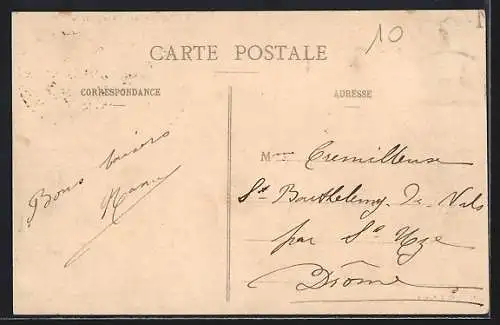 10
CARTE POSTALE
CORRESPONDANCE
ADRESSE
Bons baisers
M
St Barthelemy. De Vals
par St Uze
Drôme